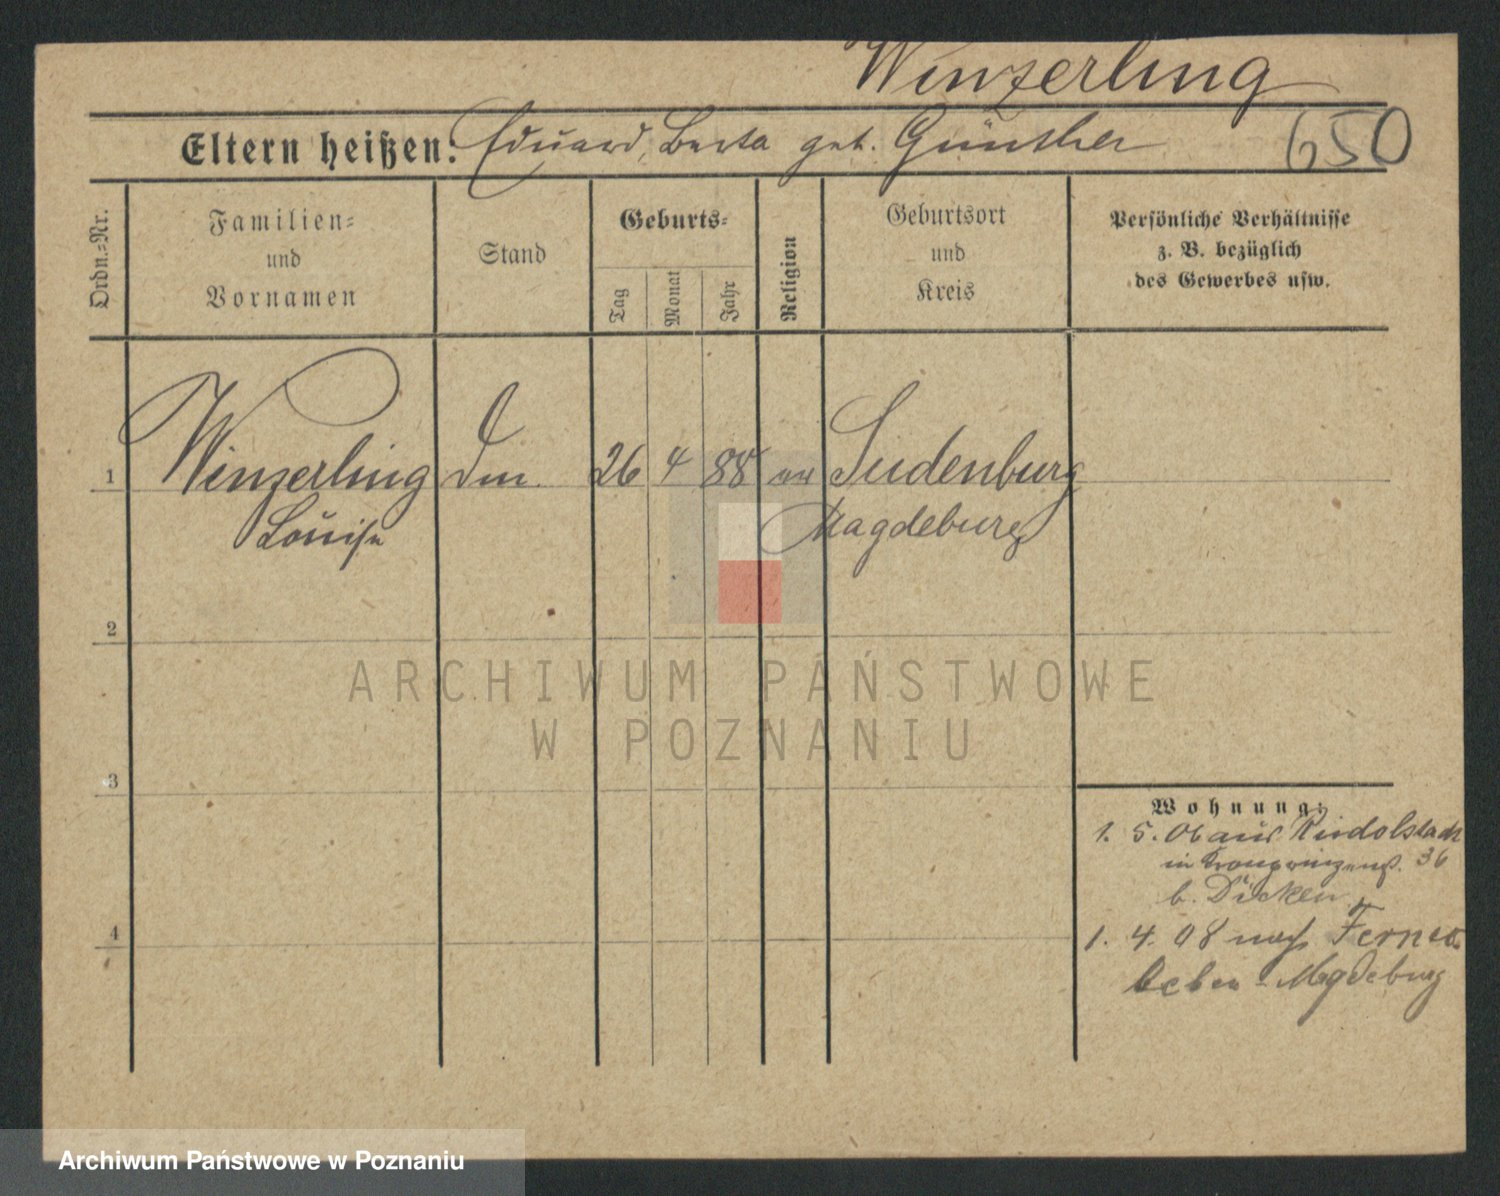 Winzerling
Eltern heißen: Eduard, Berta geb. Günther 650
Ordn.=Nr.
Familien=
und
Vornamen
Stand
Geburts=
Tag
Monat
Jahr
Religion
Geburtsort
und
Kreis
Persönliche Verhältnisse
z. B. bezüglich
des Gewerbes usw.
1 Winzerling 26 4 88 ev Sudenburg
Louise Magdeburg
2
ARCHIWUM PAŃSTWOWE
W POZNANIU
3
Wohnung:
1. 5. 06 aus Rudolstadt
in Kronprinzenstr. 36
b. Dücken
4
1. 4. 08 nach
leben - Magdeburg
Archiwum Państwowe w Poznaniu